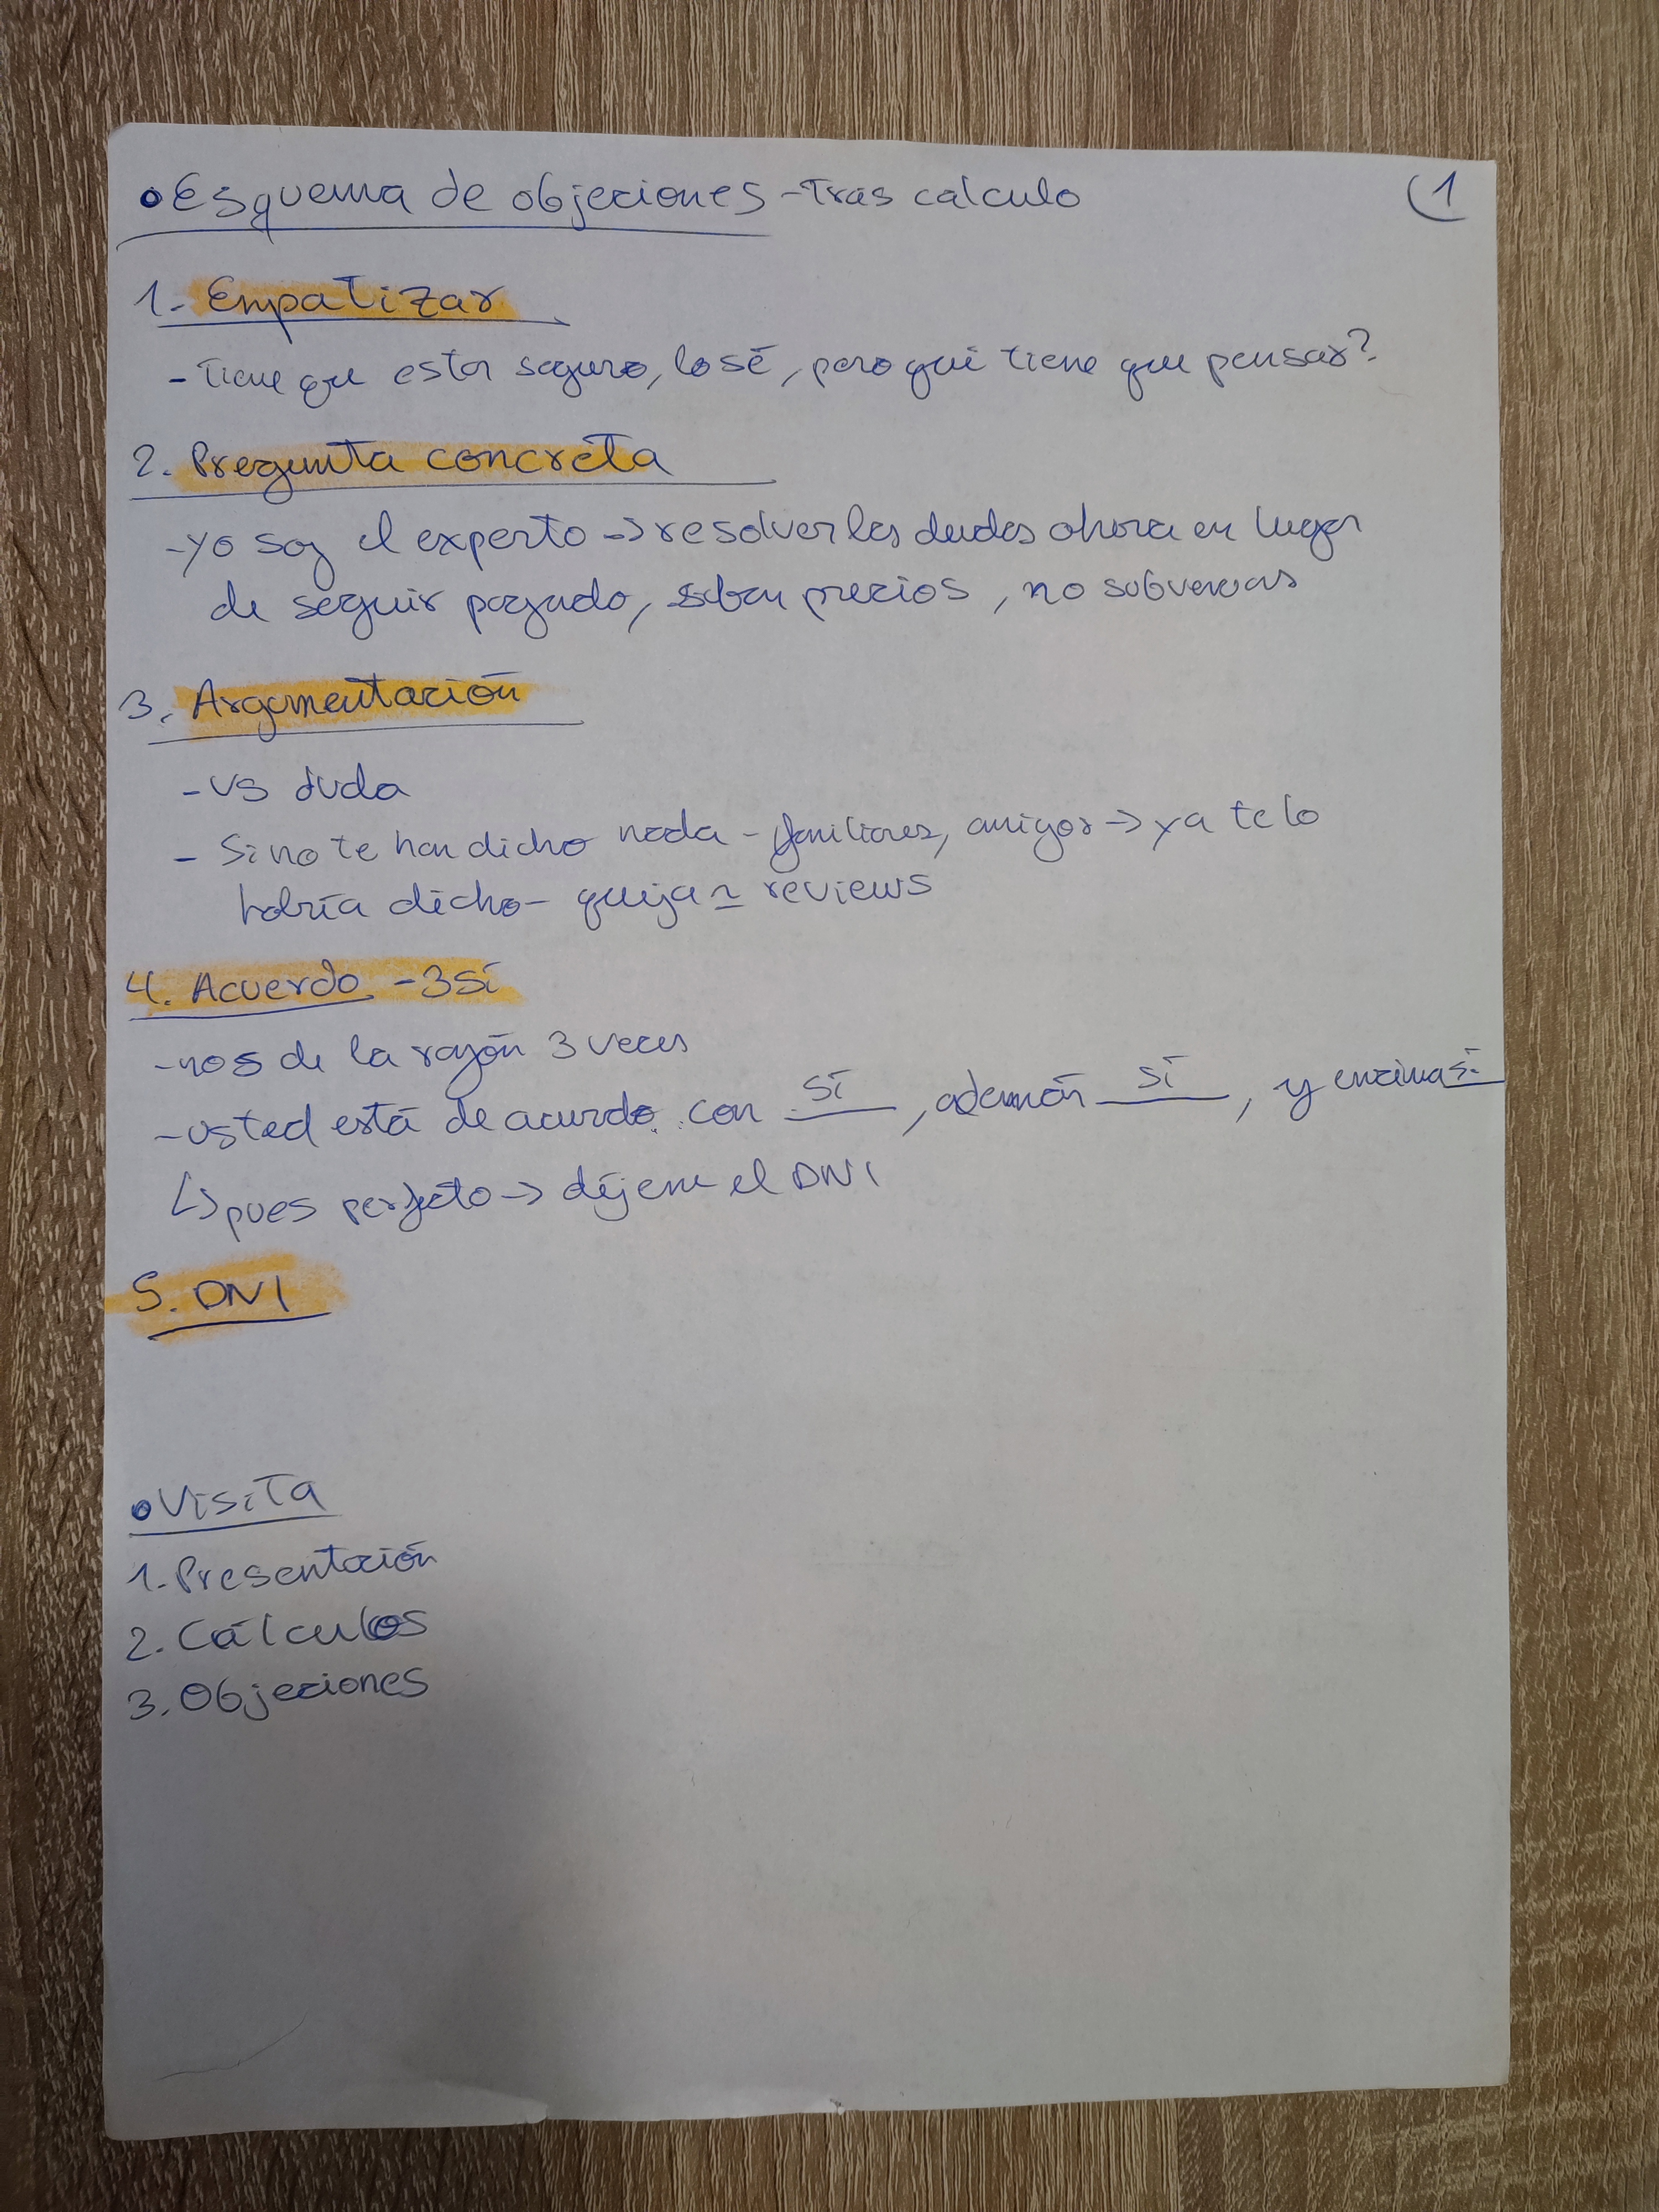 • Esquema de objeciones - Tras cálculo
1
1. Empatizar
- Tiene que estar seguro, lo sé, pero qué tiene que pensar?
2. Pregunta concreta
- yo soy el experto -> resolver las dudas ahora en lugar
de seguir pagando, suben precios, no subvencias
3. Argumentación
- vs duda
- Si no te han dicho nada - familiares, amigos -> ya te lo
habría dicho - queja ~ reviews
4. Acuerdo - 3 sí
- nos de la razón 3 veces
- usted está de acuerdo con sí, además sí, y encima sí
↳ pues perfecto -> déjeme el DNI
5. DNI
• Visita
1. Presentación
2. Cálculos
3. Objeciones